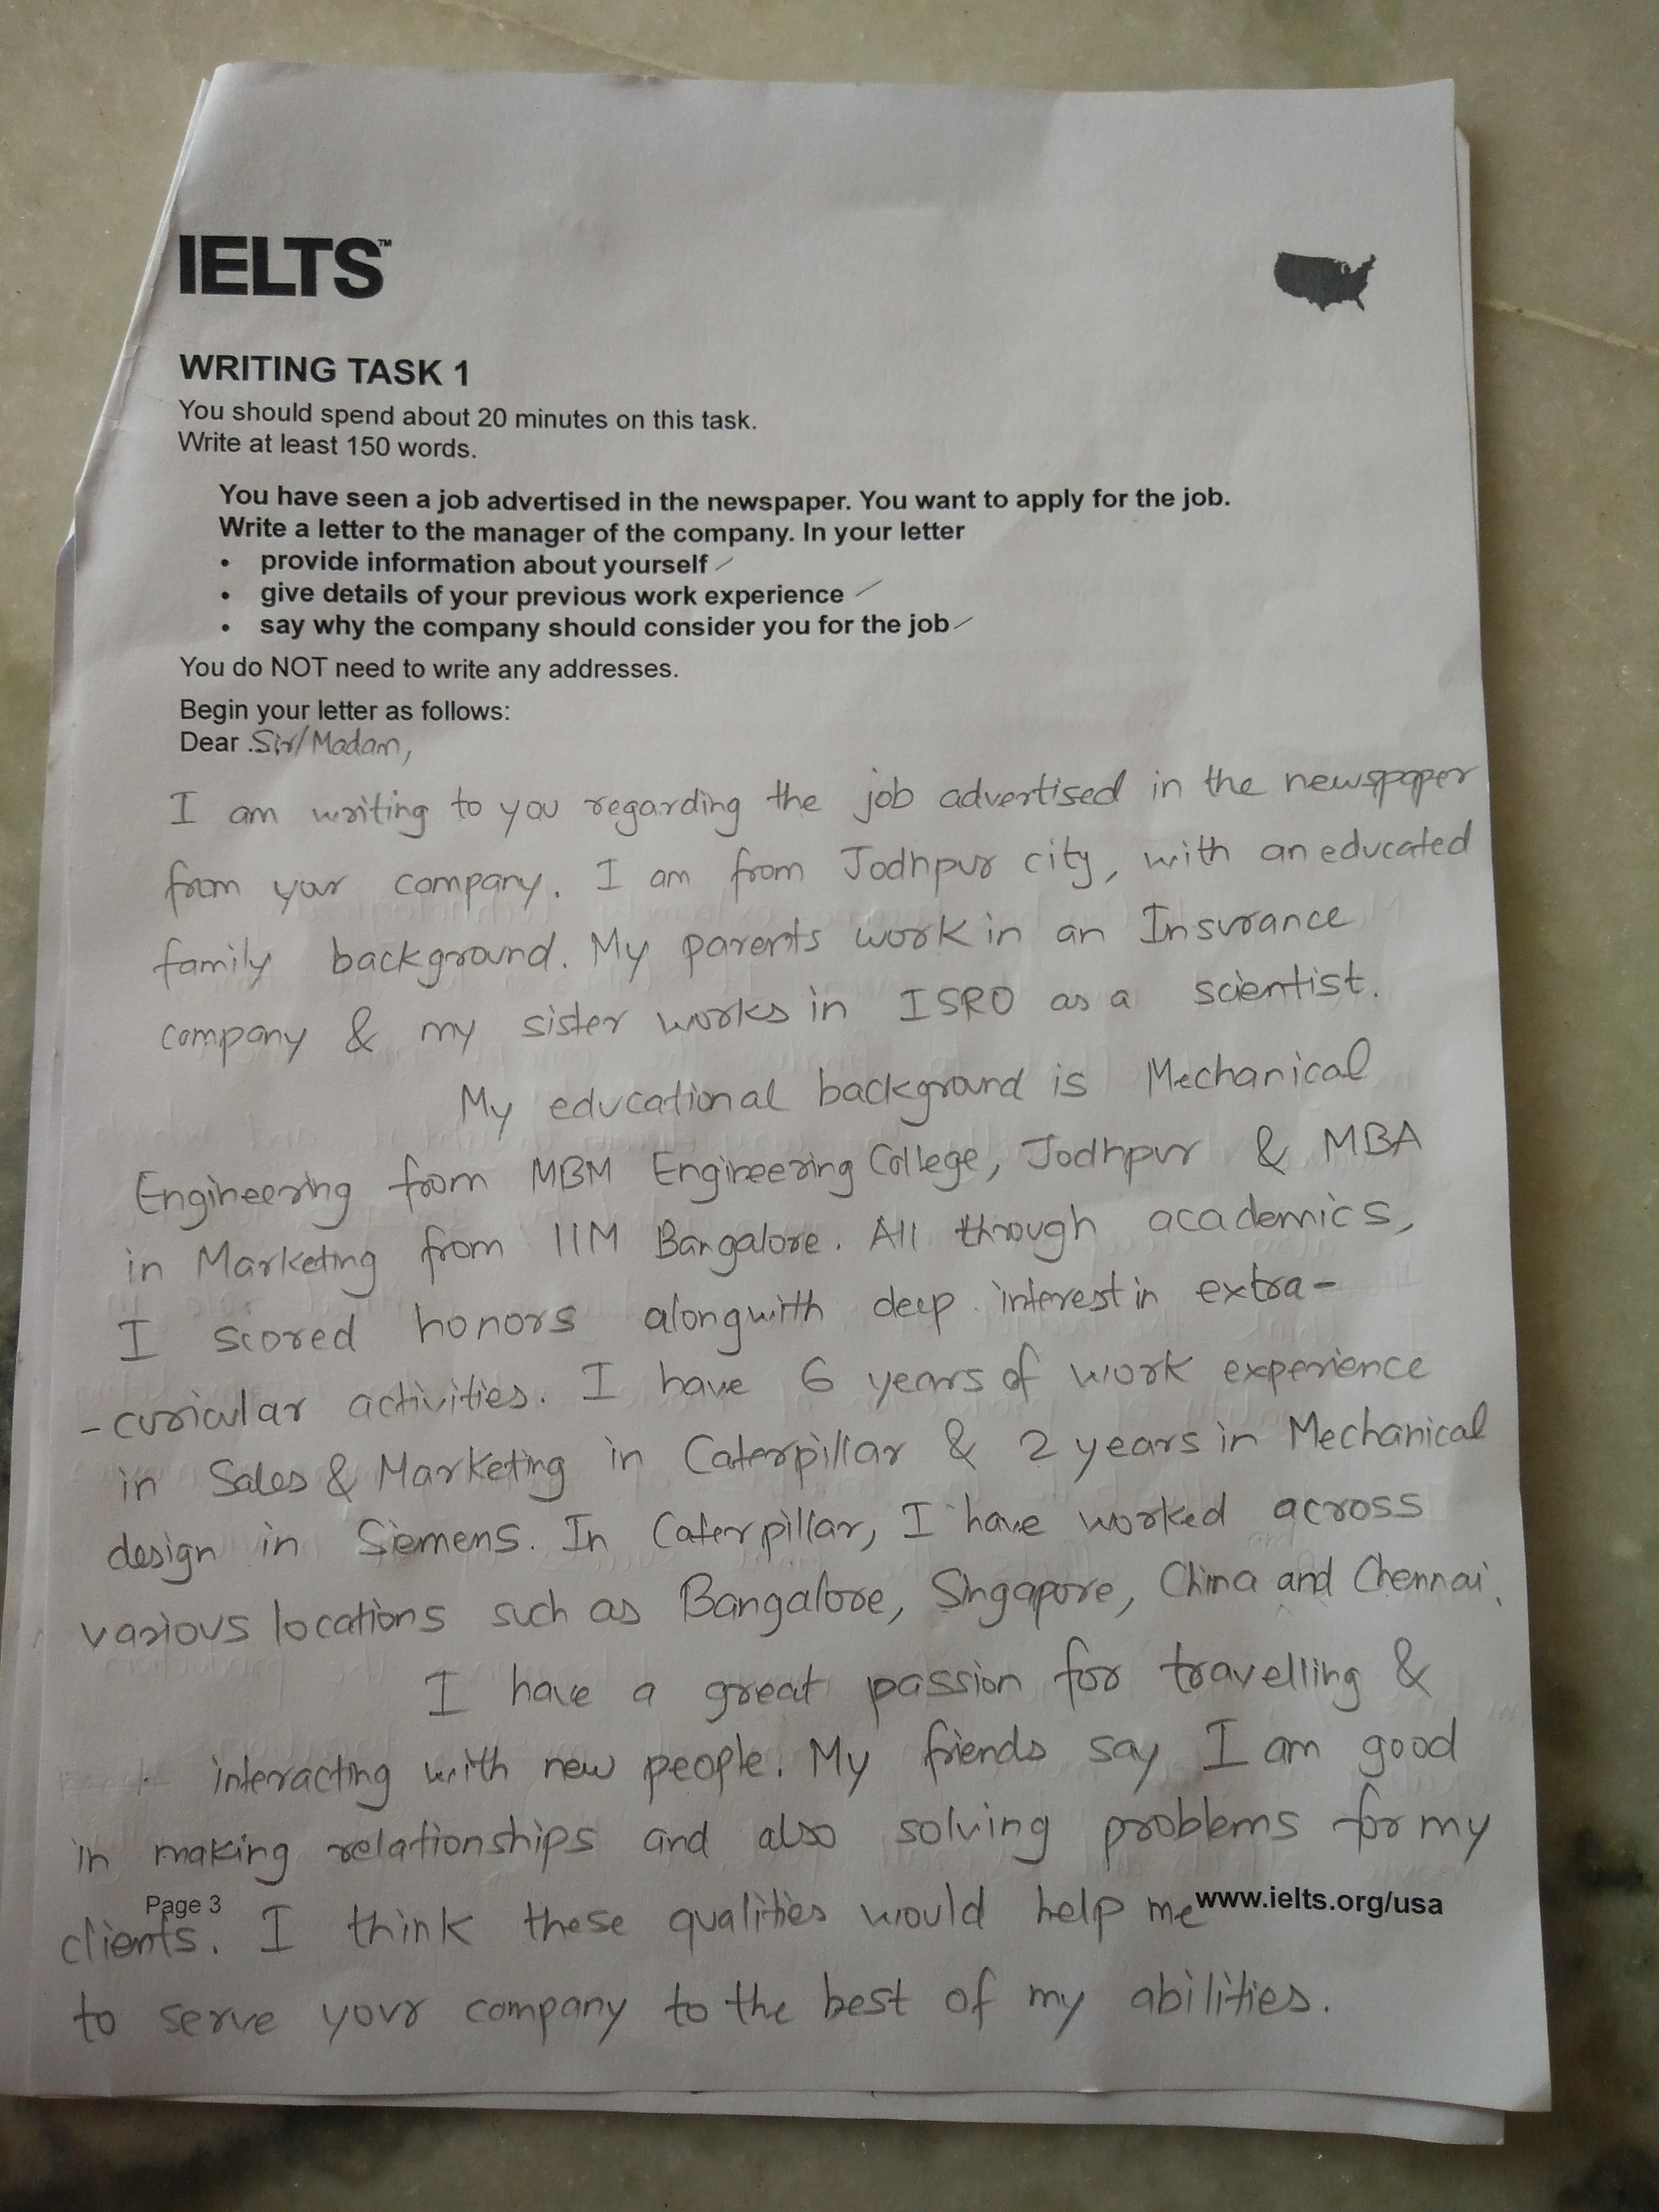 IELTS™
WRITING TASK 1
You should spend about 20 minutes on this task.
Write at least 150 words.
You have seen a job advertised in the newspaper. You want to apply for the job.
Write a letter to the manager of the company. In your letter
• provide information about yourself
• give details of your previous work experience
• say why the company should consider you for the job
You do NOT need to write any addresses.
Begin your letter as follows:
Dear .Sir/Madam,
I am writing to you regarding the job advertised in the newspaper
from your company. I am from Jodhpur city, with an educated
family background. My parents work in an Insurance
company & my sister works in ISRO as a scientist.
My educational background is Mechanical
Engineering from MBM Engineering College, Jodhpur & MBA
in Marketing from IIM Bangalore. All through academics,
I scored honors alongwith deep interest in extra-
-curicular activities. I have 6 years of work experience
in Sales & Marketing in Caterpillar & 2 years in Mechanical
design in Siemens. In Caterpillar, I have worked across
various locations such as Bangalore, Singapore, China and Chennai.
I have a great passion for travelling &
interacting with new people. My friends say I am good
in making relationships and also solving problems for my
Page 3 www.ielts.org/usa
clients. I think these qualities would help me
to serve your company to the best of my abilities.